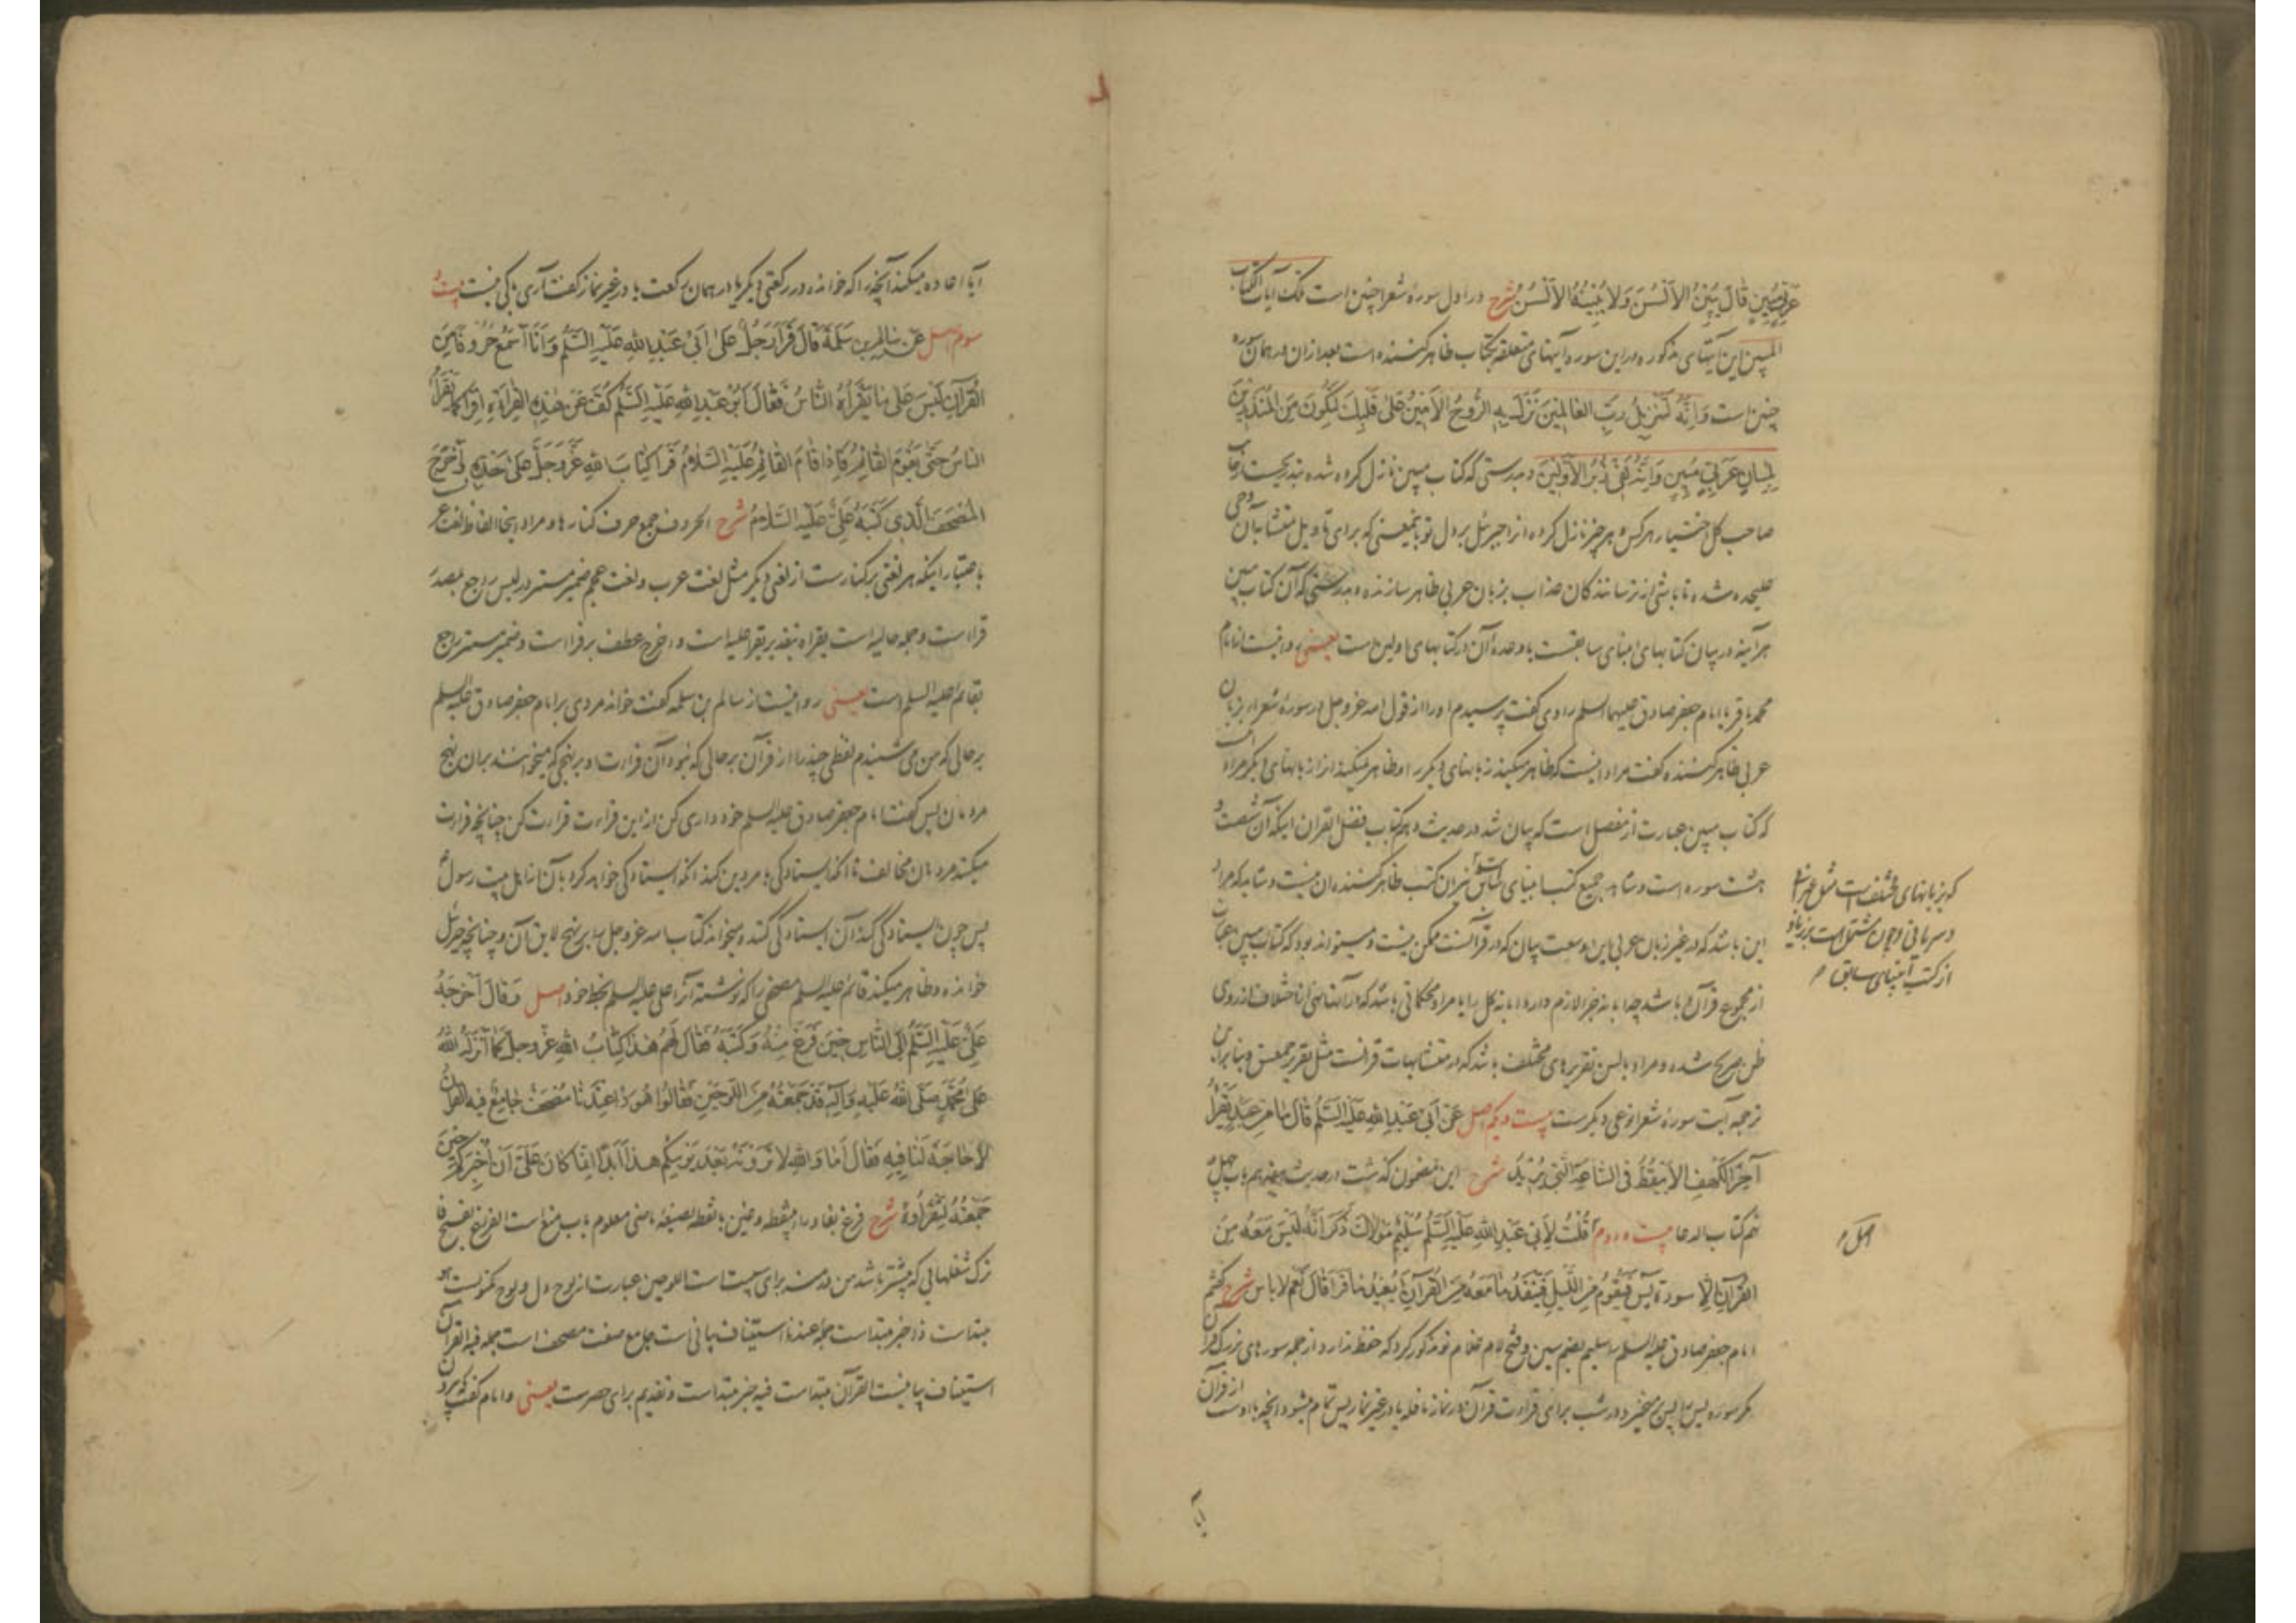 عربي مُبينٍ قالَ يُبَيِّنُ الاَلْسُنَ وَلا يُبَيِّنُهُ الاَلْسُنُ شرح در اول سورهٔ شعرا چنین است تلک آیات الکتاب
المبین این آیتهای مذکوره در این سوره آیتهای متعلقه بکتاب ظاهر کننده است بعد ازان در همان سوره
چنین است وَاِنَّهُ لَتَنزيلُ رَبِّ العالَمينَ نَزَلَ بِهِ الرُّوحُ الاَمينُ عَلى قَلبِكَ لِتَكونَ مِنَ المُنذِرينَ
بِلِسانٍ عَرَبيٍّ مُبينٍ وَاِنَّهُ لَفي زُبُرِ الاَوَّلينَ و بدرستی که کتاب مبین نازل کرده شده بتدریجست از جانب
صاحب کل اختیار هر کس و هر چیز نازل کرده انرا جبرئیل بر دل تو باین معنی که برای تاویل متشابه آن وحی
علیحده شده تا باشی از ترسانندگان عذاب بزبان عربی ظاهر سازنده و بدرستی که آن کتاب مبین
هر آینه در بیان کتابهای انبیای سابقست یا وعدهٔ آن در کتابهای اولین است یعنی روایتست از امام
محمد باقر یا امام جعفر صادق علیهما السلم راوی گفت پرسیدم او را از قول الله عز وجل در سورهٔ شعرا بزبان
عربی ظاهر کننده گفت مراد اینست که ظاهر میکند زبانهای دیگر را و ظاهر نمیکند آنرا زبانهای دیگر مراد است
که کتاب مبین عبارت از مفصل است که بیان شد در حدیث دهم کتاب فضل القران اینکه آن شصت و
هشت سوره است و شاهد بر جمیع کتب انبیای سابق است
این باشد که در غیر زبان عربی این وسعت بیان که در قرآنست ممکن نیست و میتواند بود که کتاب مبین عبارت
از مجموع قرآن باشد چه ابانه جزء لازم دارد ابانه کل را یا مراد محکماتی باشد که در آنها نهی از اختلاف از روی
ظن صریح شده و مراد بالسن تقریرهای مختلف باشد که در متشابهات قرانست مثل تقریر حمعسق و بنابراین
ترجمه آیت سورهٔ شعرا نوعی دیگرست بیست و یکم اصل عَن اَبي عَبدِاللهِ عَلَيهِ السَّلمُ قالَ ما مِن عَبدٍ يَقرَأُ
آخِرَ الكَهفِ اِلاّ تَيَقَّظَ فِي السّاعَةِ الَّتي يُريدُ شرح این مضمون گذشت در حدیث هفدهم باب چهل و
نهم کتاب الدعا بیست و دوم قُلتُ لِاَبي عَبدِاللهِ عَلَيهِ السَّلمُ سُلَيمٌ مَولاكَ ذَكَرَ اَنَّهُ لَيسَ مَعَهُ مِنَ
القُرآنِ اِلاّ سورة يس فَيَقومُ مِنَ اللَّيلِ فَيَنفَدُ ما مَعَهُ مِنَ القُرآنِ اَيُعيدُ ما قَرَأَ قالَ نَعَم لا بأس شرح گفتم
امام جعفر صادق علیه السلم را سلیم بضم سین و فتح لام غلام تو مذکور کرد که حفظ ندارد از جمله سورهای بزرگ قرآن
مگر سوره یس را پس برمیخیزد در شب برای قراءت قرآن در نماز نافله یا در غیر نماز پس تمام میشود آنچه با اوست از قرآن
آیا
که بزبانهای مختلف است مثل عبرانی
و سریانی و چون مشتمل است بر زیاده
از کتب انبیای سابق
اصل
آیا اعاده میکند آنچه را که خوانده در رکعتی دیگر یا در همان رکعت یا در غیر نماز گفت آری باکی نیست بیست و
سوم اصل عَن سالِمِ بنِ سَلَمَةَ قالَ قَرَأَ رَجُلٌ عَلى اَبي عَبدِاللهِ عَلَيهِ السَّلمُ وَاَنَا اَسمَعُ حُروفًا مِنَ
القُرآنِ لَيسَ عَلى ما يَقرَأُهُ النّاسُ فَقالَ اَبو عَبدِاللهِ عَلَيهِ السَّلمُ كُفَّ عَن هٰذِهِ القِراءَةِ اِقرَأ كَما يَقرَأُ
النّاسُ حَتّى يَقومَ القائِمُ فَاِذا قامَ القائِمُ عَلَيهِ السَّلامُ قَرَأَ كِتابَ اللهِ عَزَّوَجَلَّ عَلى حَدِّهِ وَاَخرَجَ
المُصحَفَ الَّذي كَتَبَهُ عَلِيٌّ عَلَيهِ السَّلامُ شرح الحروف جمع حرف کنارها و مراد اینجا الفاظ لغت عرب
باعتبار اینکه هر لغتی بر کنارست از لغتی دیگر مثل لغت عرب و لغت عجم ضمیر مستتر در لیس راجع بمصدر
قراءست و جمله حالیه است یقراه بتقدیر یقرا علیه است و اخرج عطف بر قرا است و ضمیر مستتر راجع
بقائم علیه السلم است یعنی روایتست از سالم بن سلمه گفت خواند مردی بر امام جعفر صادق علیه السلم
بر حالی که من می شنیدم لفظی چند را از قرآن بر حالی که نبود آن قراءت او بر نهجی که میخوانند بر آن نهج
مردمان پس گفت امام جعفر صادق علیه السلم خود داری کن از این قراءت قراءت کن چنانچه قراءت
میکنند مردمان مخالف تا آنکه ایستادگی بامر دین کند آنکه ایستادگی خواهد کرد بآن از اهل بیت رسول
پس چون ایستادگی کند آن ایستادگی کننده میخواند کتاب الله عز وجل را بر نهج لایق آن و چنانچه جبرئیل
خوانده و ظاهر میکند قائم علیه السلم مصحفی را که نوشته آنرا علی علیه السلم بخط خود اصل وَقالَ اَخرَجَهُ
عَلِيٌّ عَلَيهِ السَّلمُ اِلَى النّاسِ حينَ فَرَغَ مِنهُ وَكَتَبَهُ فَقالَ لَهُم هٰذا كِتابُ اللهِ عَزَّوَجَلَّ كَما اَنزَلَهُ اللهُ
عَلى مُحَمَّدٍ صَلَّى اللهُ عَلَيهِ وَآلِهِ قَد جَمَعتُهُ مِنَ اللَّوحَينِ فَقالوا هُوَ ذا عِندَنا مُصحَفٌ جامِعٌ فيهِ القُرآنُ
لا حاجَةَ لَنا فيهِ فَقالَ اَما وَاللهِ لا تَرَونَهُ بَعدَ يَومِكُم هٰذا اَبَدًا اِنَّما كانَ عَلَيَّ اَن اُخبِرَكُم حينَ
جَمَعتُهُ لِتَقرَأوهُ شرح فرغ بفا و را بینقطه و غین با نقطه بصیغه ماضی معلوم باب منع است الفراغ بفتح فا
ترک شغلهائی که پیشتر باشد من در منه برای سببیت است اللوحین عبارت از لوح دل و لوح مکتوبست هو
مبتداست ذا خبر مبتداست جمله عندنا استیناف بیانی است جامع صفت مصحف است جمله فیه القرآن
استیناف بیانیست القرآن مبتداست فیه خبر مبتداست و تقدیم برای حصرست یعنی و امام گفت